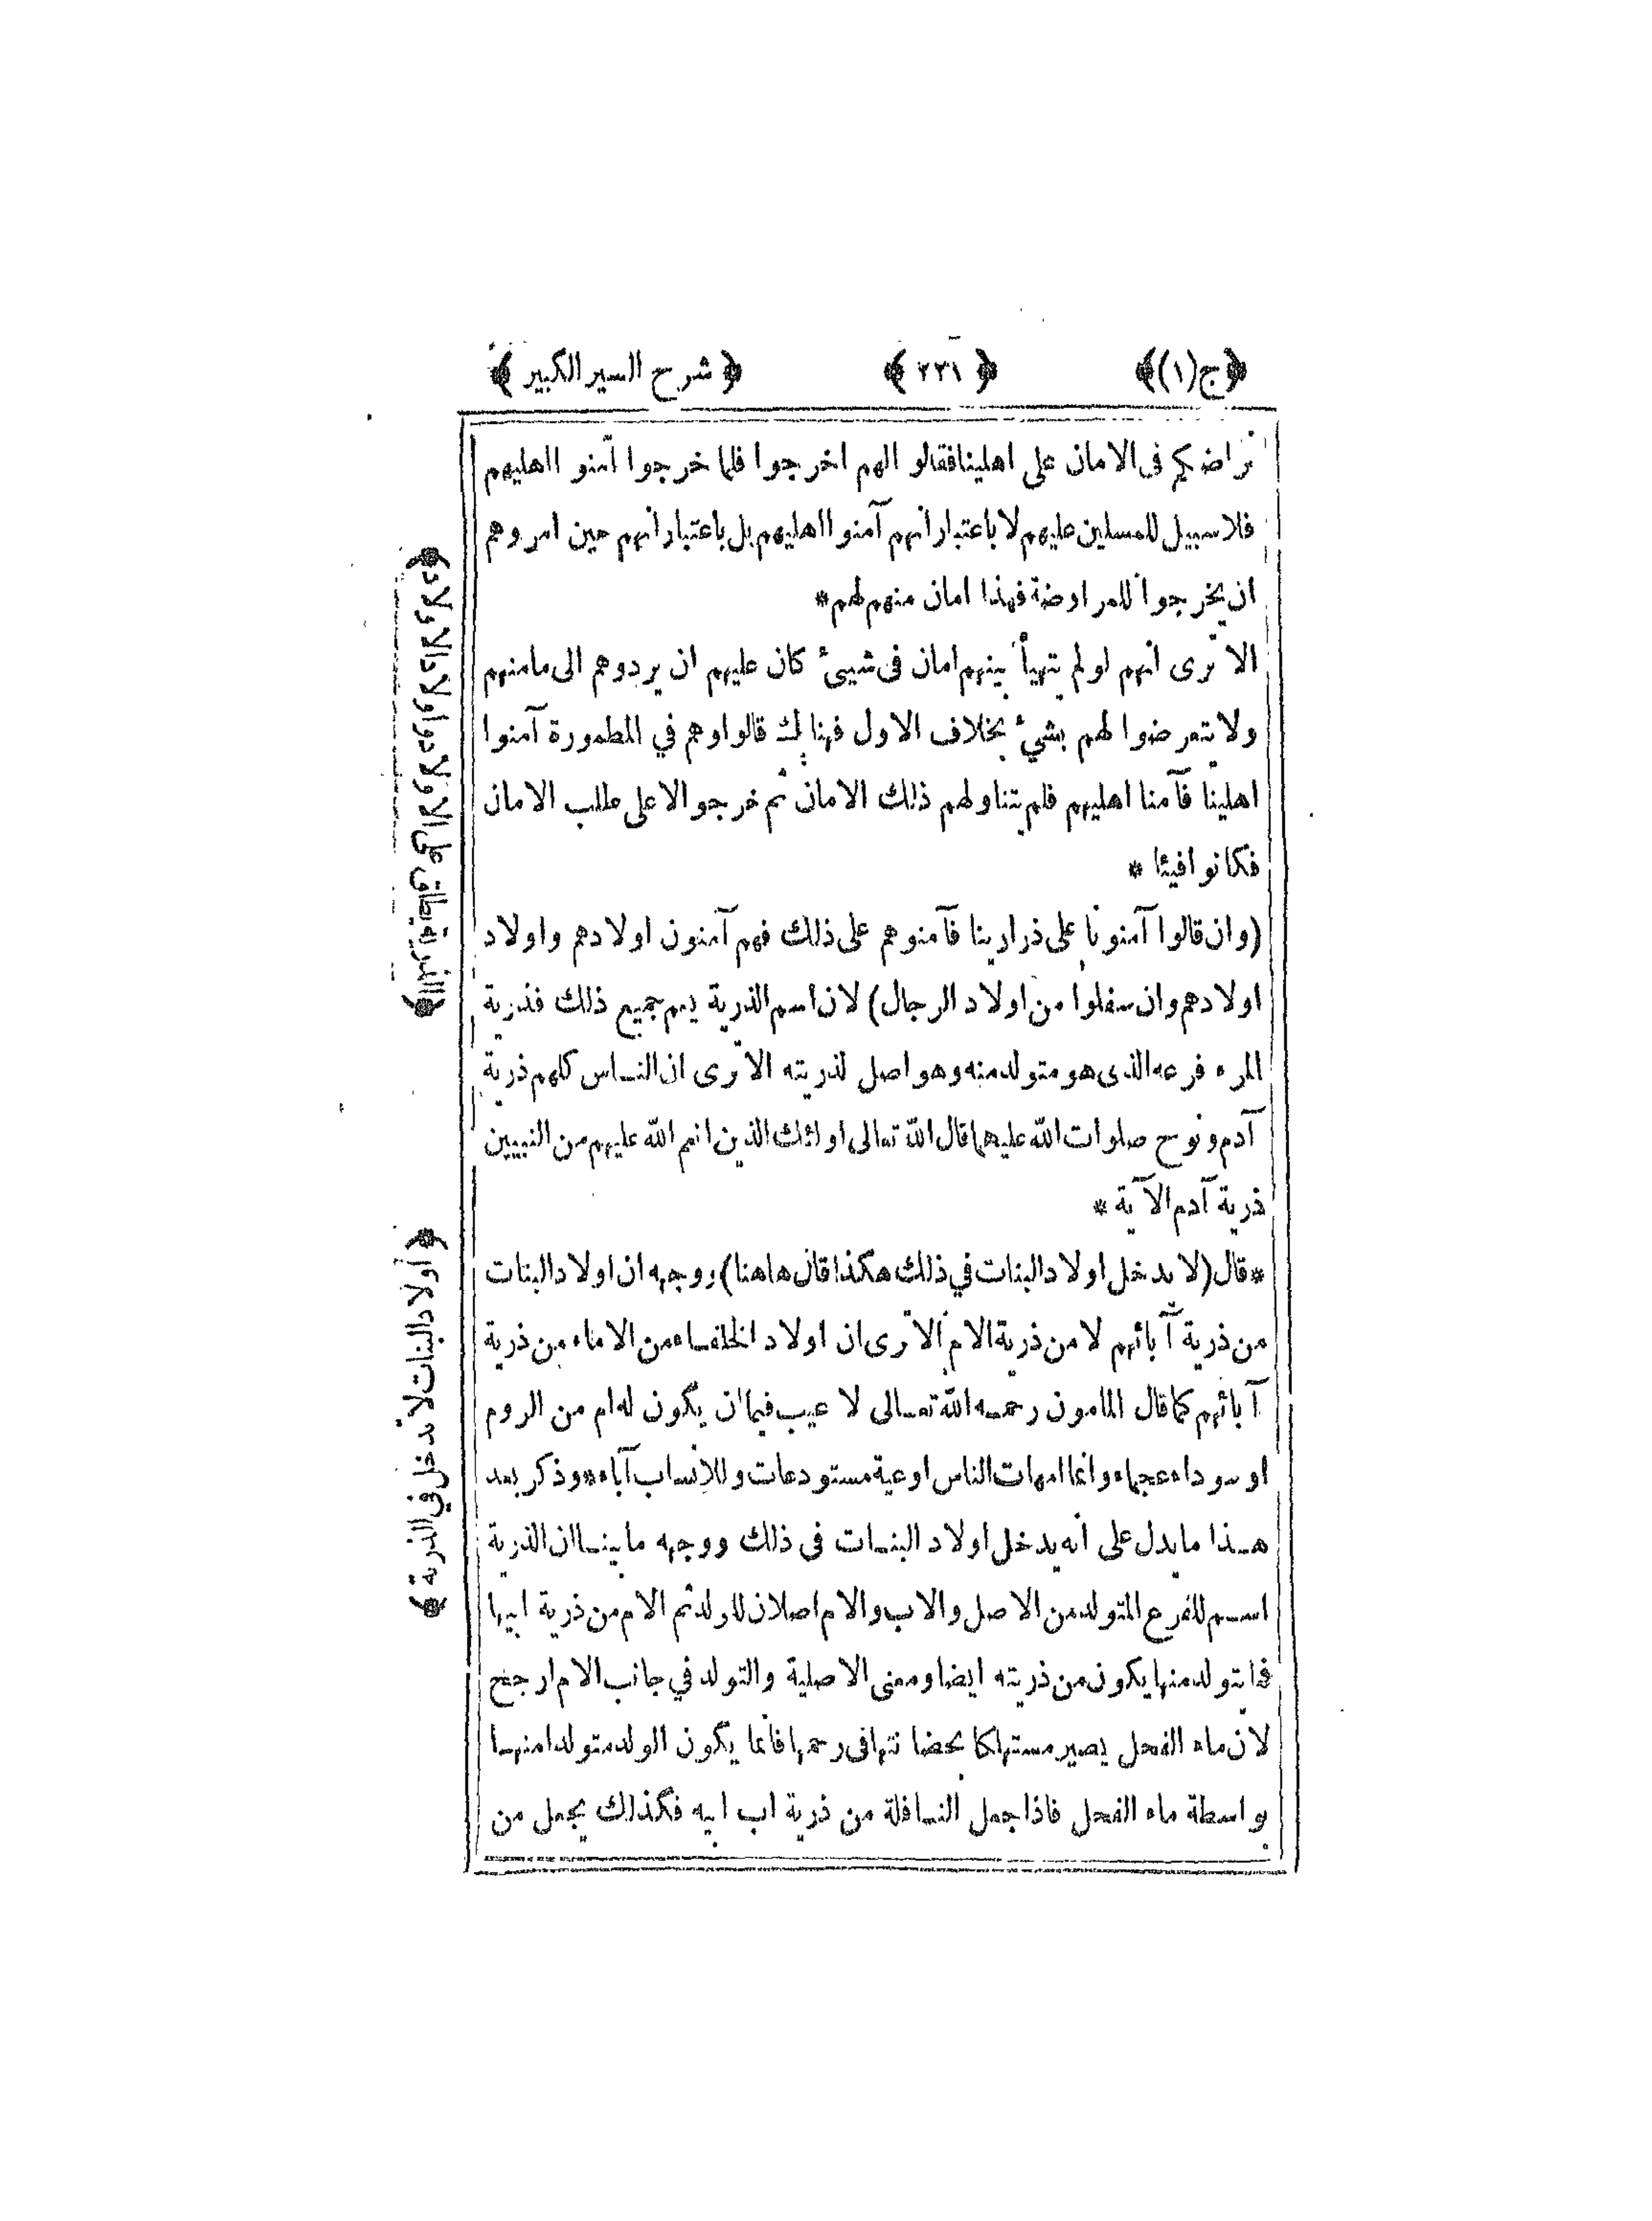 ﴿ج(١)﴾ ﴿ ٢٣١ ﴾ ﴿ شرح السير الكبير ﴾
نراضكم فى الامان على اهلينا فقالوا لهم اخرجوا فلما خرجوا آمنوا اهليهم
فلا سبيل للمسلمين عليهم لا باعتبار انهم آمنوا اهليهم بل باعتبار انهم حين امروهم
ان يخرجوا للمراوضة فهذا امان منهم لهم*
الا ترى انهم لو لم يتهيأ بينهم امان فى شيئ كان عليهم ان يردوهم الى مامنهم
ولا يتعرضوا لهم بشيء بخلاف الاول فهنالك قالوا وهم في المطمورة آمنوا
اهلينا فآمنا اهليهم فلم يتناولهم ذلك الامان ثم خرجوا لا على طلب الامان
فكانوا فيئا *
(وان قالوا آمنونا على ذرارينا فآمنوهم على ذلك فهم آمنون اولادهم واولاد
اولادهم وان سفلوا من اولاد الرجال) لان اسم الذرية يعم جميع ذلك فذرية
المرء فرعه الذى هو متولد منه وهو اصل لذريته الا ترى ان الناس كلهم ذرية
آدم ونوح صلوات الله عليهما قال الله تعالى اولئك الذين انعم الله عليهم من النبيين
ذرية آدم الآية *
*قال (لا يدخل اولاد البنات في ذلك هكذا قال هاهنا) ووجهه ان اولاد البنات
من ذرية آبائهم لا من ذرية الام الا ترى ان اولاد الخلفاء من الاماء من ذرية
آبائهم كما قال المامون رحمه الله تعالى لا عيب فيما ان يكون له ام من الروم
او سوداء عجماء وانما امهات الناس اوعية مستودعات وللانساب آباء *وذكر بعد
هذا ما يدل على انه يدخل اولاد البنات فى ذلك ووجهه ما بينا ان الذرية
اسم للفرع المتولد من الاصل والاب والام اصلان للولد ثم الام من ذرية ابيها
فما يتولد منها يكون من ذريته ايضا ومعنى الاصلية والتولد في جانب الام ارجح
لان ماء الفحل يصير مستهلكا بحضانتها فى رحمها فانما يكون الولد متولدا منها
بواسطة ماء الفحل فاذا جعل النافلة من ذرية اب ابيه فكذلك يجعل من
﴿الذرية يطلق على الاولاد واولاد الاولاد﴾
﴿اولاد البنات لا تدخل في الذرية﴾